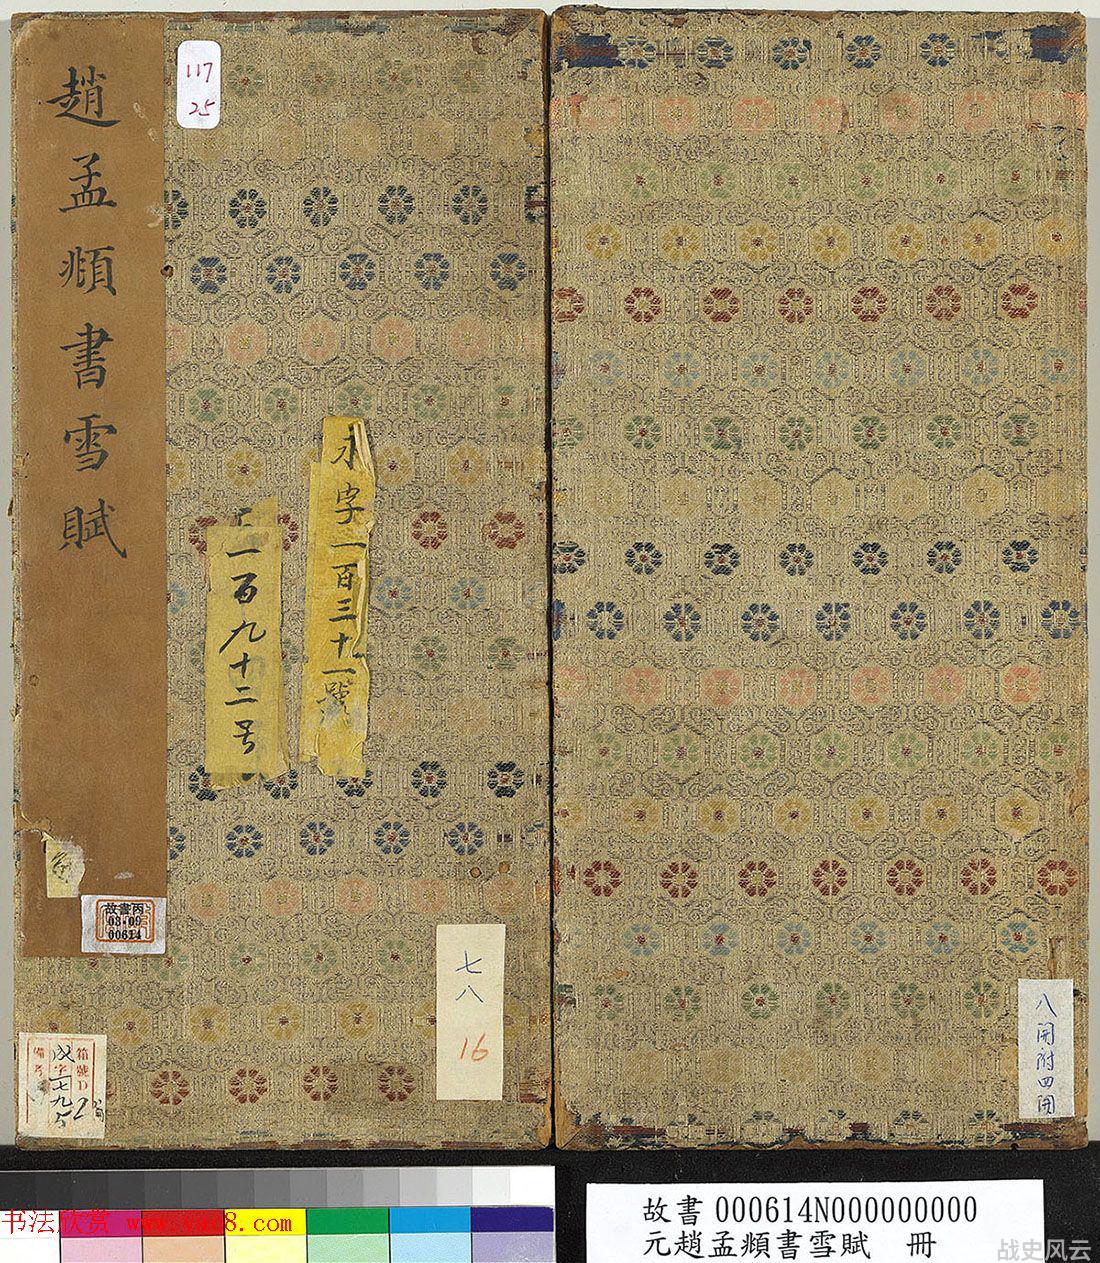 趙孟頫書雪賦
117
25
永字一百三十一號
一百九十二号
故書丙
03·09
00614
七八
16
箱號D
備考
八開附四開
故書 000614N000000000
元趙孟頫書雪賦 冊
书法欣赏 www.yac8.com
战史风云